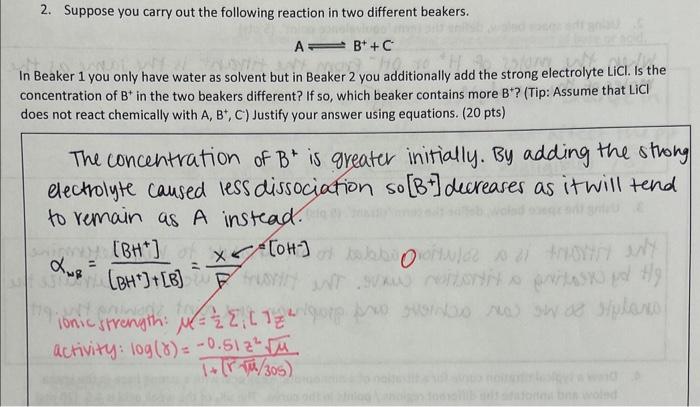 2. Suppose you carry out the following reaction in two different beakers.
A ⇌ B⁺ + C⁻
In Beaker 1 you only have water as solvent but in Beaker 2 you additionally add the strong electrolyte LiCl. Is the
concentration of B⁺ in the two beakers different? If so, which beaker contains more B⁺? (Tip: Assume that LiCl
does not react chemically with A, B⁺, C⁻) Justify your answer using equations. (20 pts)
The concentration of B⁺ is greater initially. By adding the strong
electrolyte caused less dissociation so [B⁺] decreases as it will tend
to remain as A instead.
α_WB = [BH⁺] / [BH⁺]+[B] = x / F ← = [OH⁻]
0
ionic strength: μ = ½ Σᵢ [ ] z²
activity: log(γ) = -0.51 z² √μ / 1+(r √μ/305)